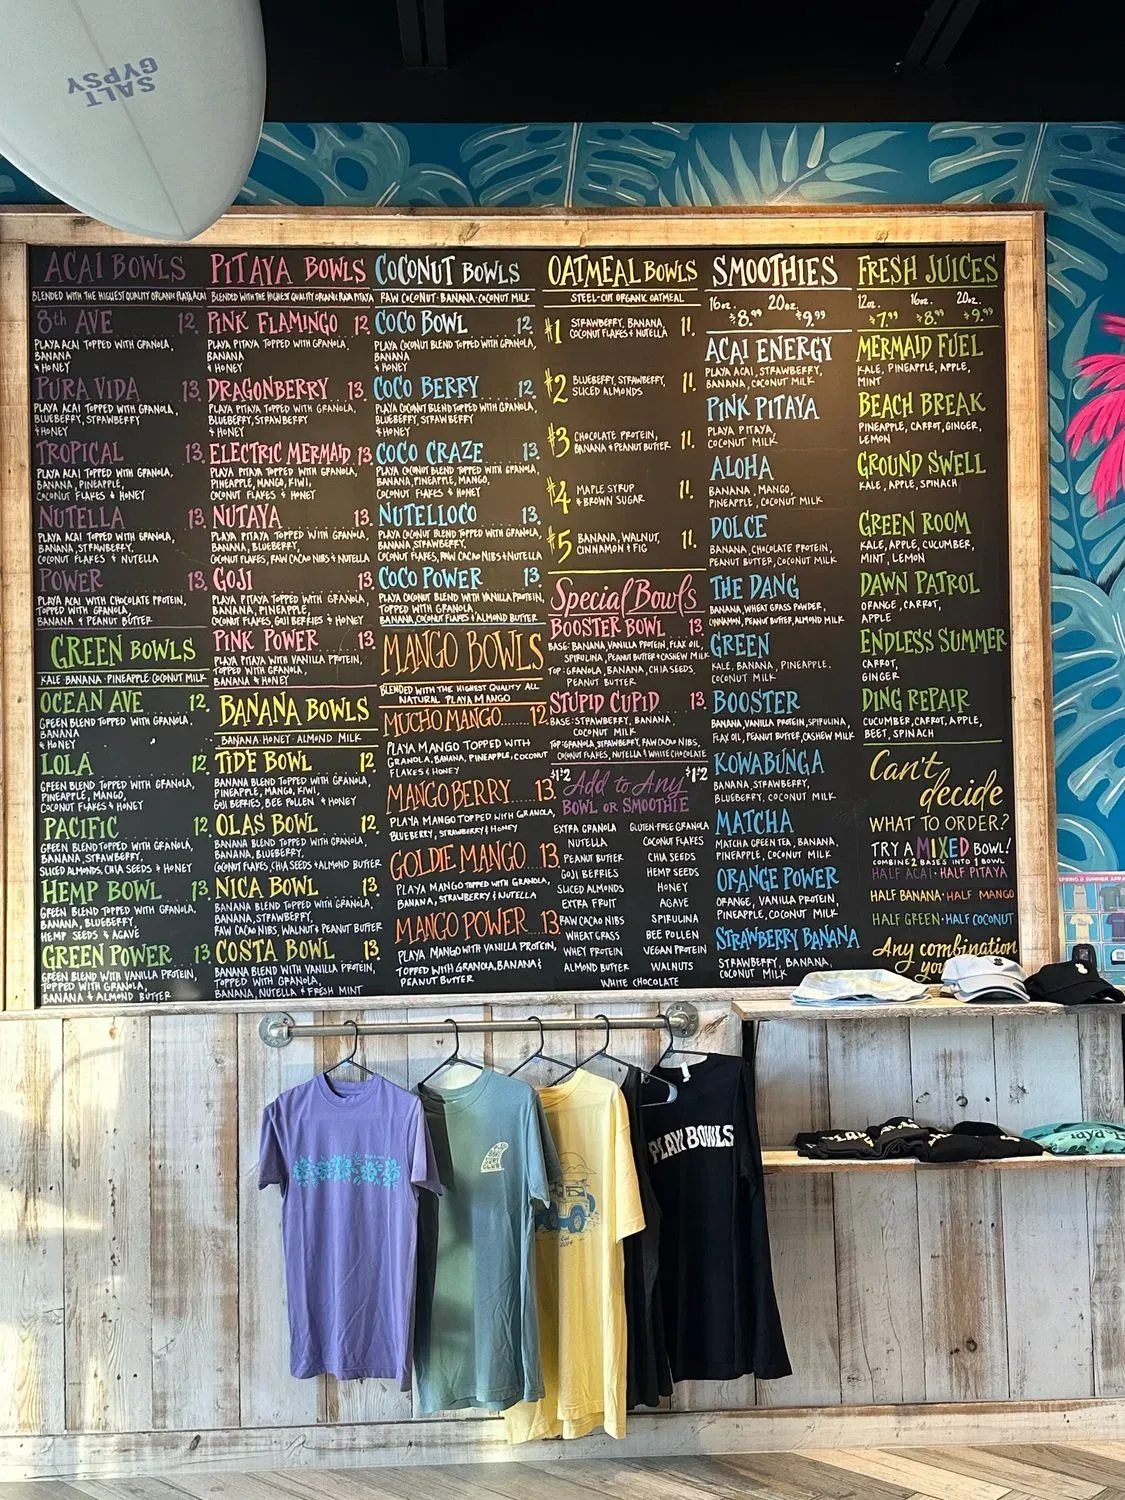 SALT
GYPSY
ACAI BOWLS
BLENDED WITH THE HIGHEST QUALITY ORGANIC PLAYA ACAI
8th AVE 12.
PLAYA ACAI TOPPED WITH GRANOLA,
BANANA
& HONEY
PURA VIDA 13.
PLAYA ACAI TOPPED WITH GRANOLA,
BLUEBERRY, STRAWBERRY
& HONEY
TROPICAL 13.
PLAYA ACAI TOPPED WITH GRANOLA,
BANANA, PINEAPPLE,
COCONUT FLAKES & HONEY
NUTELLA 13.
PLAYA ACAI TOPPED WITH GRANOLA,
BANANA, STRAWBERRY,
COCONUT FLAKES & NUTELLA
POWER 13.
PLAYA ACAI WITH CHOCOLATE PROTEIN,
TOPPED WITH GRANOLA,
BANANA & PEANUT BUTTER
GREEN BOWLS
KALE · BANANA · PINEAPPLE · COCONUT MILK
OCEAN AVE 12.
GREEN BLEND TOPPED WITH GRANOLA,
BANANA
& HONEY
LOLA 12.
GREEN BLEND TOPPED WITH GRANOLA,
PINEAPPLE, MANGO,
COCONUT FLAKES & HONEY
PACIFIC 12.
GREEN BLEND TOPPED WITH GRANOLA,
BANANA, STRAWBERRY,
SLICED ALMONDS, CHIA SEEDS & HONEY
HEMP BOWL 13.
GREEN BLEND TOPPED WITH GRANOLA,
BANANA, BLUEBERRY,
HEMP SEEDS & AGAVE
GREEN POWER 13.
GREEN BLEND WITH VANILLA PROTEIN,
TOPPED WITH GRANOLA,
BANANA & ALMOND BUTTER
PITAYA BOWLS
BLENDED WITH THE HIGHEST QUALITY ORGANIC PLAYA PITAYA
PINK FLAMINGO 12.
PLAYA PITAYA TOPPED WITH GRANOLA,
BANANA
& HONEY
DRAGONBERRY 13.
PLAYA PITAYA TOPPED WITH GRANOLA,
BLUEBERRY, STRAWBERRY
& HONEY
ELECTRIC MERMAID 13.
PLAYA PITAYA TOPPED WITH GRANOLA,
PINEAPPLE, MANGO, KIWI,
COCONUT FLAKES & HONEY
NUTAYA 13.
PLAYA PITAYA TOPPED WITH GRANOLA,
BANANA, BLUEBERRY,
COCONUT FLAKES, RAW CACAO NIBS & NUTELLA
GOJI 13.
PLAYA PITAYA TOPPED WITH GRANOLA,
BANANA, PINEAPPLE,
COCONUT FLAKES, GOJI BERRIES & HONEY
PINK POWER 13.
PLAYA PITAYA WITH VANILLA PROTEIN,
TOPPED WITH GRANOLA,
BANANA & HONEY
BANANA BOWLS
BANANA · HONEY · ALMOND MILK
TIDE BOWL 12.
BANANA BLEND TOPPED WITH GRANOLA,
PINEAPPLE, MANGO, KIWI,
GOJI BERRIES, BEE POLLEN & HONEY
OLAS BOWL 12.
BANANA BLEND TOPPED WITH GRANOLA,
BANANA, BLUEBERRY,
COCONUT FLAKES, CHIA SEEDS & ALMOND BUTTER
NICA BOWL 13.
BANANA BLEND TOPPED WITH GRANOLA,
BANANA, STRAWBERRY,
RAW CACAO NIBS, WALNUT & PEANUT BUTTER
COSTA BOWL 13.
BANANA BLEND WITH VANILLA PROTEIN,
TOPPED WITH GRANOLA,
BANANA, NUTELLA & FRESH MINT
COCONUT BOWLS
RAW COCONUT · BANANA · COCONUT MILK
COCO BOWL 12.
PLAYA COCONUT BLEND TOPPED WITH GRANOLA,
BANANA
& HONEY
COCO BERRY 12.
PLAYA COCONUT BLEND TOPPED WITH GRANOLA,
BLUEBERRY, STRAWBERRY
& HONEY
COCO CRAZE 13.
PLAYA COCONUT BLEND TOPPED WITH GRANOLA,
BANANA, PINEAPPLE, MANGO,
COCONUT FLAKES & HONEY
NUTELLOCO 13.
PLAYA COCONUT BLEND TOPPED WITH GRANOLA,
BANANA, STRAWBERRY,
COCONUT FLAKES, RAW CACAO NIBS & NUTELLA
COCO POWER 13.
PLAYA COCONUT BLEND WITH VANILLA PROTEIN,
TOPPED WITH GRANOLA,
BANANA, COCONUT FLAKES & ALMOND BUTTER
MANGO BOWLS
BLENDED WITH THE HIGHEST QUALITY ALL
NATURAL PLAYA MANGO
MUCHO MANGO.......12.
PLAYA MANGO TOPPED WITH
GRANOLA, BANANA, PINEAPPLE, COCONUT
FLAKES & HONEY
MANGO BERRY.....13.
PLAYA MANGO TOPPED WITH GRANOLA,
BLUEBERRY, STRAWBERRY & HONEY
GOLDIE MANGO...13.
PLAYA MANGO TOPPED WITH GRANOLA,
BANANA, STRAWBERRY & NUTELLA
MANGO POWER...13.
PLAYA MANGO WITH VANILLA PROTEIN,
TOPPED WITH GRANOLA, BANANA &
PEANUT BUTTER
OATMEAL BOWLS
STEEL-CUT ORGANIC OATMEAL
#1 STRAWBERRY, BANANA, 11.
COCONUT FLAKES & NUTELLA
#2 BLUEBERRY, STRAWBERRY, 11.
SLICED ALMONDS
#3 CHOCOLATE PROTEIN, 11.
BANANA & PEANUT BUTTER
#4 MAPLE SYRUP 11.
& BROWN SUGAR
#5 BANANA, WALNUT, 11.
CINNAMON & FIG
Special Bowls
BOOSTER BOWL 13.
BASE: BANANA, VANILLA PROTEIN, FLAX OIL,
SPIRULINA, PEANUT BUTTER & CASHEW MILK
TOP: GRANOLA, BANANA, CHIA SEEDS,
PEANUT BUTTER
STUPID CUPID 13.
BASE: STRAWBERRY, BANANA,
COCONUT MILK
TOP: GRANOLA, STRAWBERRY, RAW CACAO NIBS,
COCONUT FLAKES, NUTELLA & WHITE CHOCOLATE
$1-$2 Add to Any $1-$2
BOWL OR SMOOTHIE
EXTRA GRANOLA GLUTEN-FREE GRANOLA
NUTELLA COCONUT FLAKES
PEANUT BUTTER CHIA SEEDS
GOJI BERRIES HEMP SEEDS
SLICED ALMONDS HONEY
EXTRA FRUIT AGAVE
RAW CACAO NIBS SPIRULINA
WHEAT GRASS BEE POLLEN
WHEY PROTEIN VEGAN PROTEIN
ALMOND BUTTER WALNUTS
WHITE CHOCOLATE
SMOOTHIES
16oz. 20oz.
$8.99 $9.99
ACAI ENERGY
PLAYA ACAI, STRAWBERRY,
BANANA, COCONUT MILK
PINK PITAYA
PLAYA PITAYA,
COCONUT MILK
ALOHA
BANANA, MANGO,
PINEAPPLE, COCONUT MILK
DOLCE
BANANA, CHOCOLATE PROTEIN,
PEANUT BUTTER, COCONUT MILK
THE DANG
BANANA, WHEAT GRASS POWDER,
CINNAMON, PEANUT BUTTER, ALMOND MILK
GREEN
KALE, BANANA, PINEAPPLE,
COCONUT MILK
BOOSTER
BANANA, VANILLA PROTEIN, SPIRULINA,
FLAX OIL, PEANUT BUTTER, CASHEW MILK
KOWABUNGA
BANANA, STRAWBERRY,
BLUEBERRY, COCONUT MILK
MATCHA
MATCHA GREEN TEA, BANANA,
PINEAPPLE, COCONUT MILK
ORANGE POWER
ORANGE, VANILLA PROTEIN,
PINEAPPLE, COCONUT MILK
STRAWBERRY BANANA
STRAWBERRY, BANANA,
COCONUT MILK
FRESH JUICES
12oz. 16oz. 20oz.
$7.99 $8.99 $9.99
MERMAID FUEL
KALE, PINEAPPLE, APPLE,
MINT
BEACH BREAK
PINEAPPLE, CARROT, GINGER,
LEMON
GROUND SWELL
KALE, APPLE, SPINACH
GREEN ROOM
KALE, APPLE, CUCUMBER,
MINT, LEMON
DAWN PATROL
ORANGE, CARROT,
APPLE
ENDLESS SUMMER
CARROT,
GINGER
DING REPAIR
CUCUMBER, CARROT, APPLE,
BEET, SPINACH
Can't
decide
WHAT TO ORDER?
TRY A MIXED BOWL!
COMBINE 2 BASES INTO 1 BOWL
HALF ACAI · HALF PITAYA
HALF BANANA · HALF MANGO
HALF GREEN · HALF COCONUT
Any combination
SPRING & SUMMER
PLAYA BOWLS